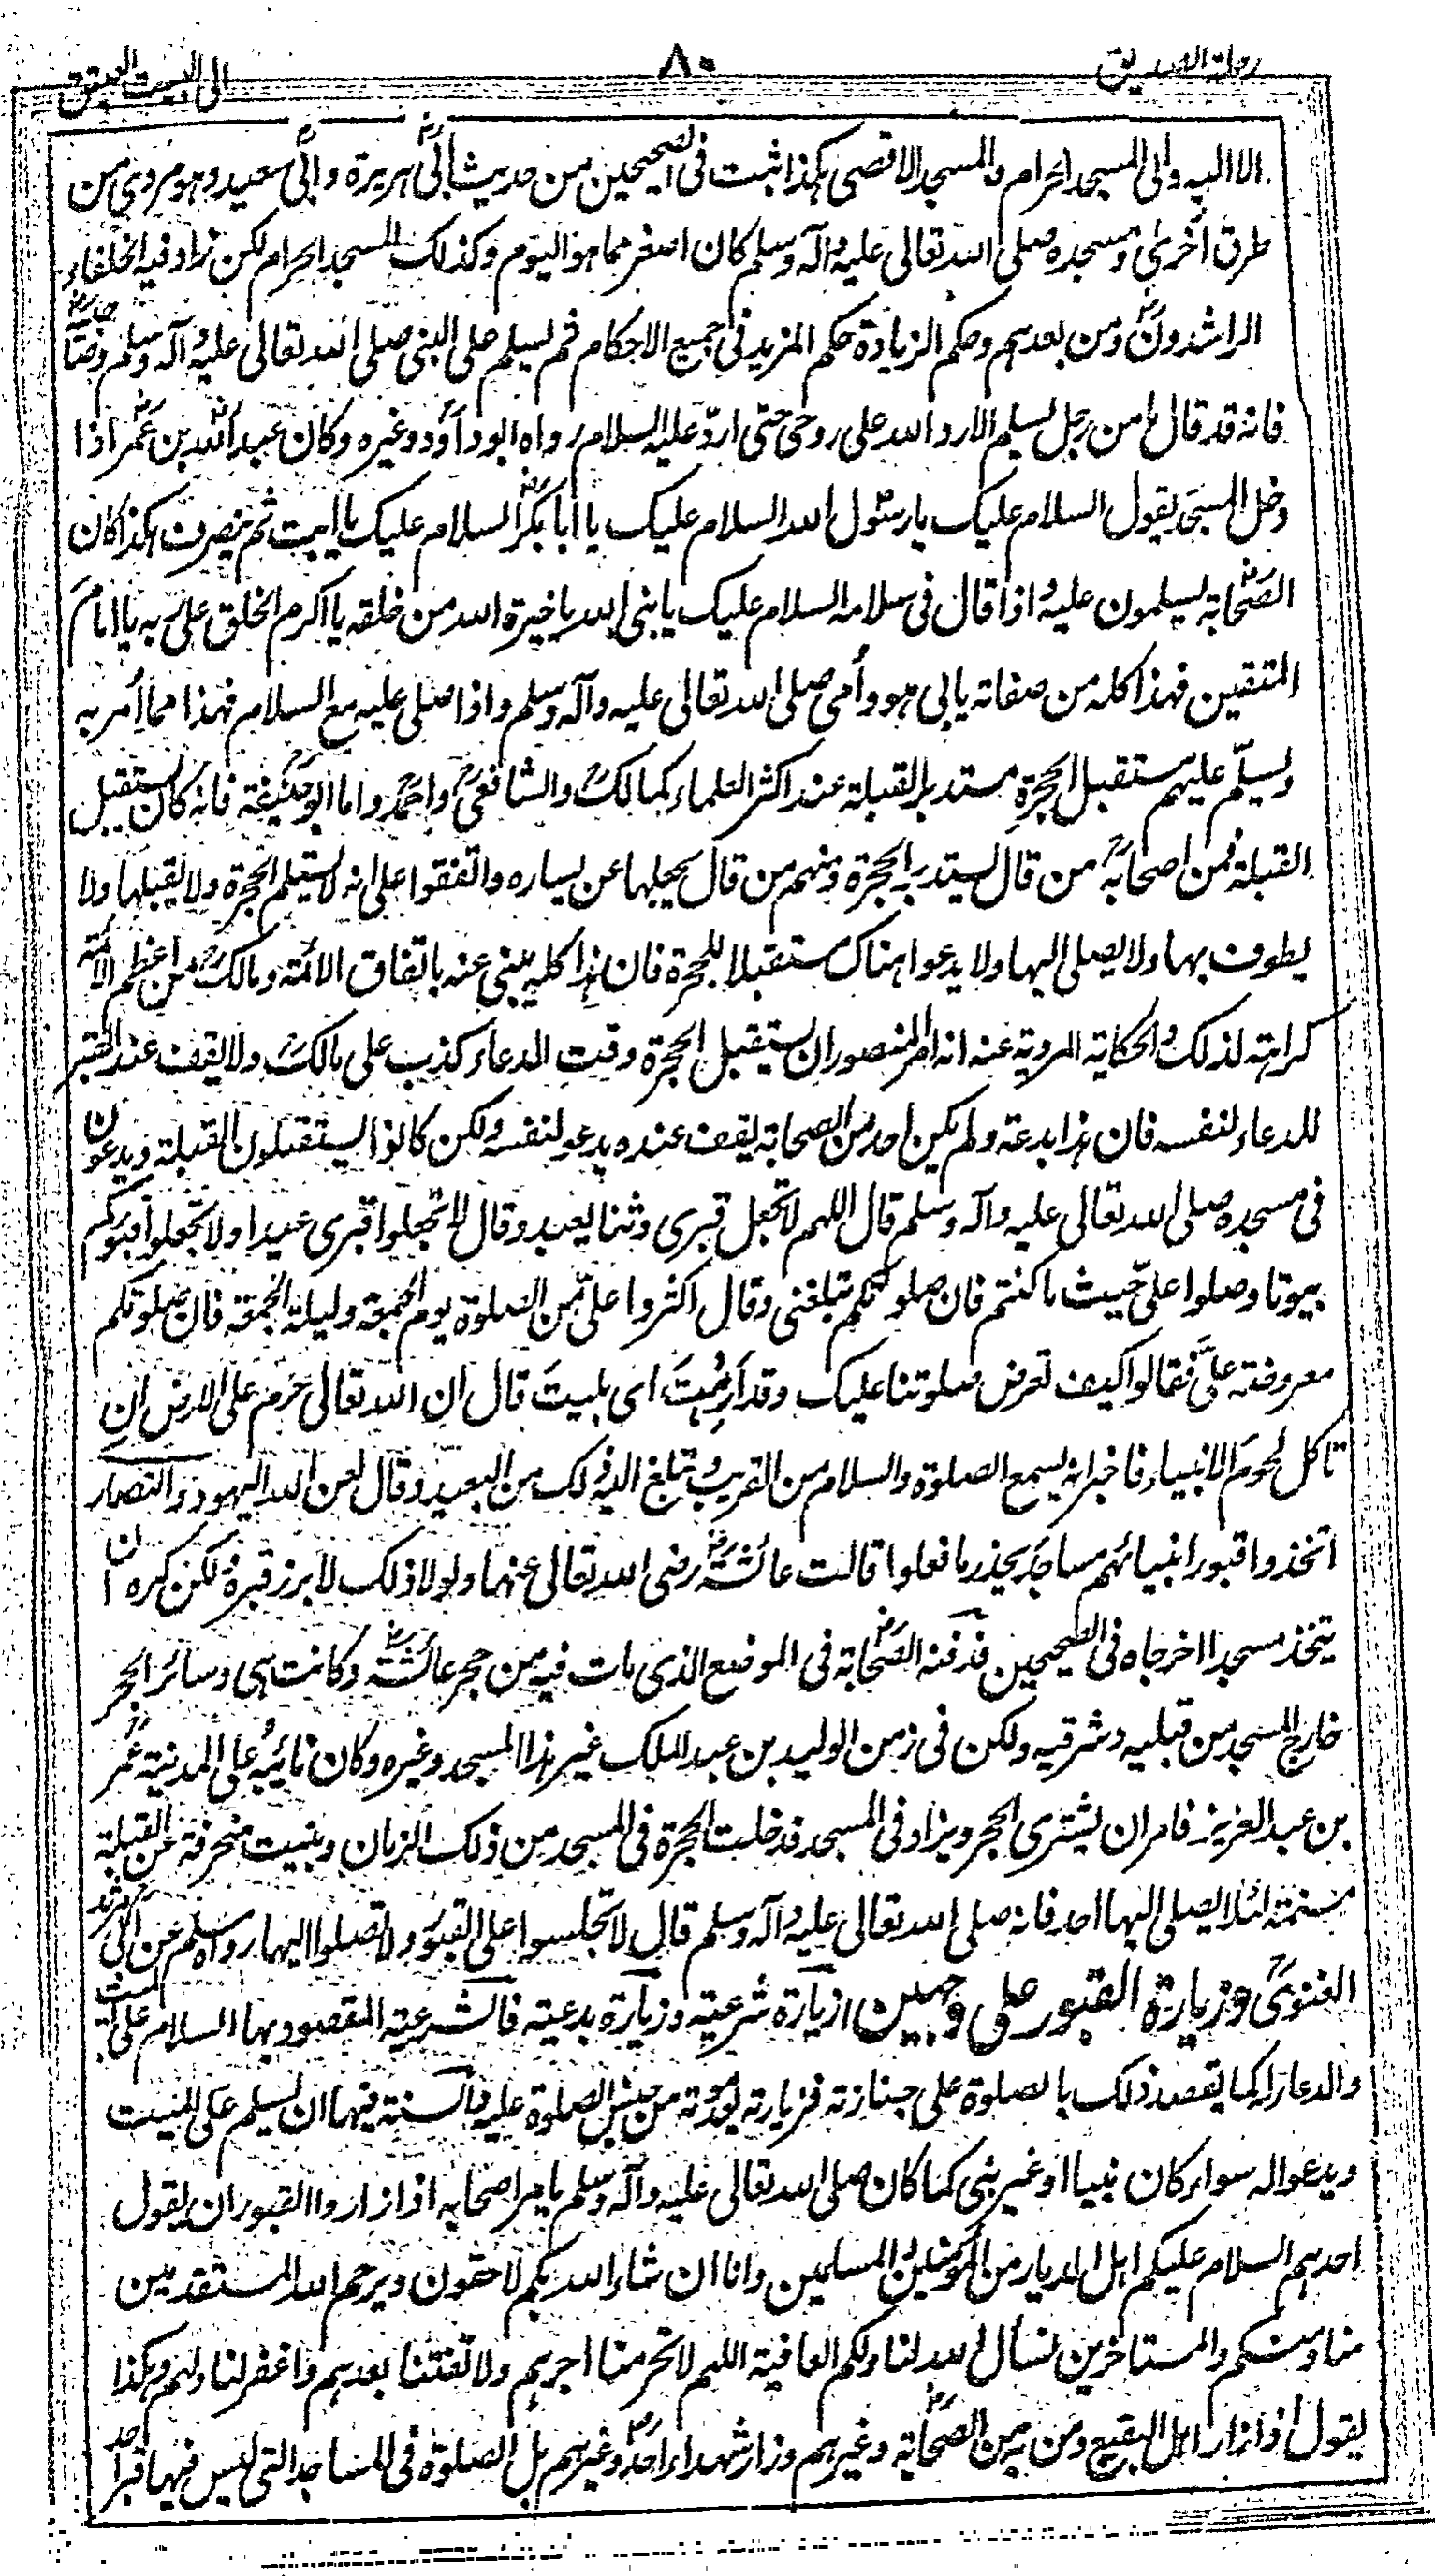 رحلة الصديق ٨٠ الى البيت العتيق
الا اليه والى المسجد الحرام والمسجد الاقصى هكذا ثبت فى الصحيحين من حديث ابى هريرة وابى سعيد وهو مروي من
طرق اخرى ومسجده صلى الله تعالى عليه وآله وسلم كان اصغر مما هو اليوم وكذلك المسجد الحرام لكن زاد فيه الخلفاء
الراشدون ومن بعدهم وحكم الزيادة حكم المزيد فى جميع الاحكام ثم يسلم على النبى صلى الله تعالى عليه وآله وسلم وصاحبيه
فانه قد قال ما من رجل يسلم الا رد الله على روحى حتى ارد عليه السلام رواه ابو داود وغيره وكان عبد الله بن عمر اذا
دخل المسجد يقول السلام عليك يا رسول الله السلام عليك يا ابا بكر السلام عليك يا ابت ثم ينصرف هكذا كان
الصحابة يسلمون عليه اذا قال فى سلامه السلام عليك يا نبى الله يا خيرة الله من خلقه يا اكرم الخلق على ربه يا امام
المتقين فهذا كله من صفاته بابى هو وأمى صلى الله تعالى عليه وآله وسلم واذا صلى عليه مع السلام فهذا مما أمر به
ويسلم عليهم مستقبل الحجرة مستدبر القبلة عند اكثر العلماء كمالك والشافعى واحمد واما ابو حنيفة فانه كان يستقبل
القبلة فمن اصحابه من قال يستدبر الحجرة ومنهم من قال يجعلها عن يساره واتفقوا على انه لا يستلم الحجرة ولا يقبلها ولا
يطوف بها ولا يصلى اليها ولا يدعو هناك مستقبلا للحجرة فان هذا كله ينهى عنه باتفاق الائمة ومالك من اعظم الائمة
كراهته لذلك والحكاية المروية عنه انه امر المنصور ان يستقبل الحجرة وقت الدعاء كذب على مالك ولا يقف عند القبر
للدعاء لنفسه فان هذا بدعة ولم يكن احد من الصحابة يقف عنده يدعو لنفسه ولكن كانوا يستقبلون القبلة ويدعون
فى مسجده صلى الله تعالى عليه وآله وسلم قال اللهم لا تجعل قبرى وثنا يعبد وقال لا تجعلوا قبرى عيدا ولا تجعلوا قبوركم
بيوتا وصلوا على حيث ما كنتم فان صلوتكم تبلغنى وقال اكثروا على من الصلوة يوم الجمعة وليلة الجمعة فان صلوتكم
معروضة على فقالوا كيف تعرض صلوتنا عليك وقد ارمت اى بليت قال ان الله تعالى حرم على الارض ان
تاكل لحوم الانبياء فاخبر انه يسمع الصلوة والسلام من القريب وتبلغ اليه ذلك من البعيد وقال لعن الله اليهود والنصارى
اتخذوا قبور انبيائهم مساجد يحذر ما فعلوا قالت عائشة رضى الله تعالى عنها ولولا ذلك لابرز قبره لكن كره ان
يتخذ مسجدا اخرجاه فى الصحيحين فدفنه الصحابة فى الموضع الذى مات فيه من حجر عائشة وكانت هى وسائر الحجر
خارج المسجد من قبليه وشرقيه ولكن فى زمن الوليد بن عبد الملك غير هذا المسجد وغيره وكان نائبه على المدينة عمر
بن عبد العزيز فامر ان يشترى الحجر ويزاد فى المسجد فدخلت الحجرة فى المسجد من ذلك الزمان وبنيت منحرفة عن القبلة
مسنمة لئلا يصلى اليها احد فانه صلى الله تعالى عليه وآله وسلم قال لا تجلسوا على القبور ولا تصلوا اليها رواه مسلم عن ابى مرثد
الغنوى وزيارة القبور على وجهين زيارة شرعية وزيارة بدعية فالشرعية المقصود بها السلام على الميت
والدعاء له كما يقصد ذلك بالصلوة على جنازته فزيارته بعد موته من جنس الصلوة عليه والسنة فيها ان يسلم على الميت
ويدعو له سواء كان نبيا او غير نبى كما كان صلى الله تعالى عليه وآله وسلم يامر اصحابه اذا زاروا القبور ان يقول
احدهم السلام عليكم اهل الديار من المؤمنين والمسلمين وانا ان شاء الله بكم لاحقون ويرحم الله المستقدمين
منا ومنكم والمستاخرين نسأل الله لنا ولكم العافية اللهم لا تحرمنا اجرهم ولا تفتنا بعدهم واغفر لنا ولهم وهكذا
يقول اذا زار اهل البقيع ومن به من الصحابة وغيرهم وزار شهداء احد وغيرهم بل الصلوة فى المساجد التى ليس فيها قبر احد